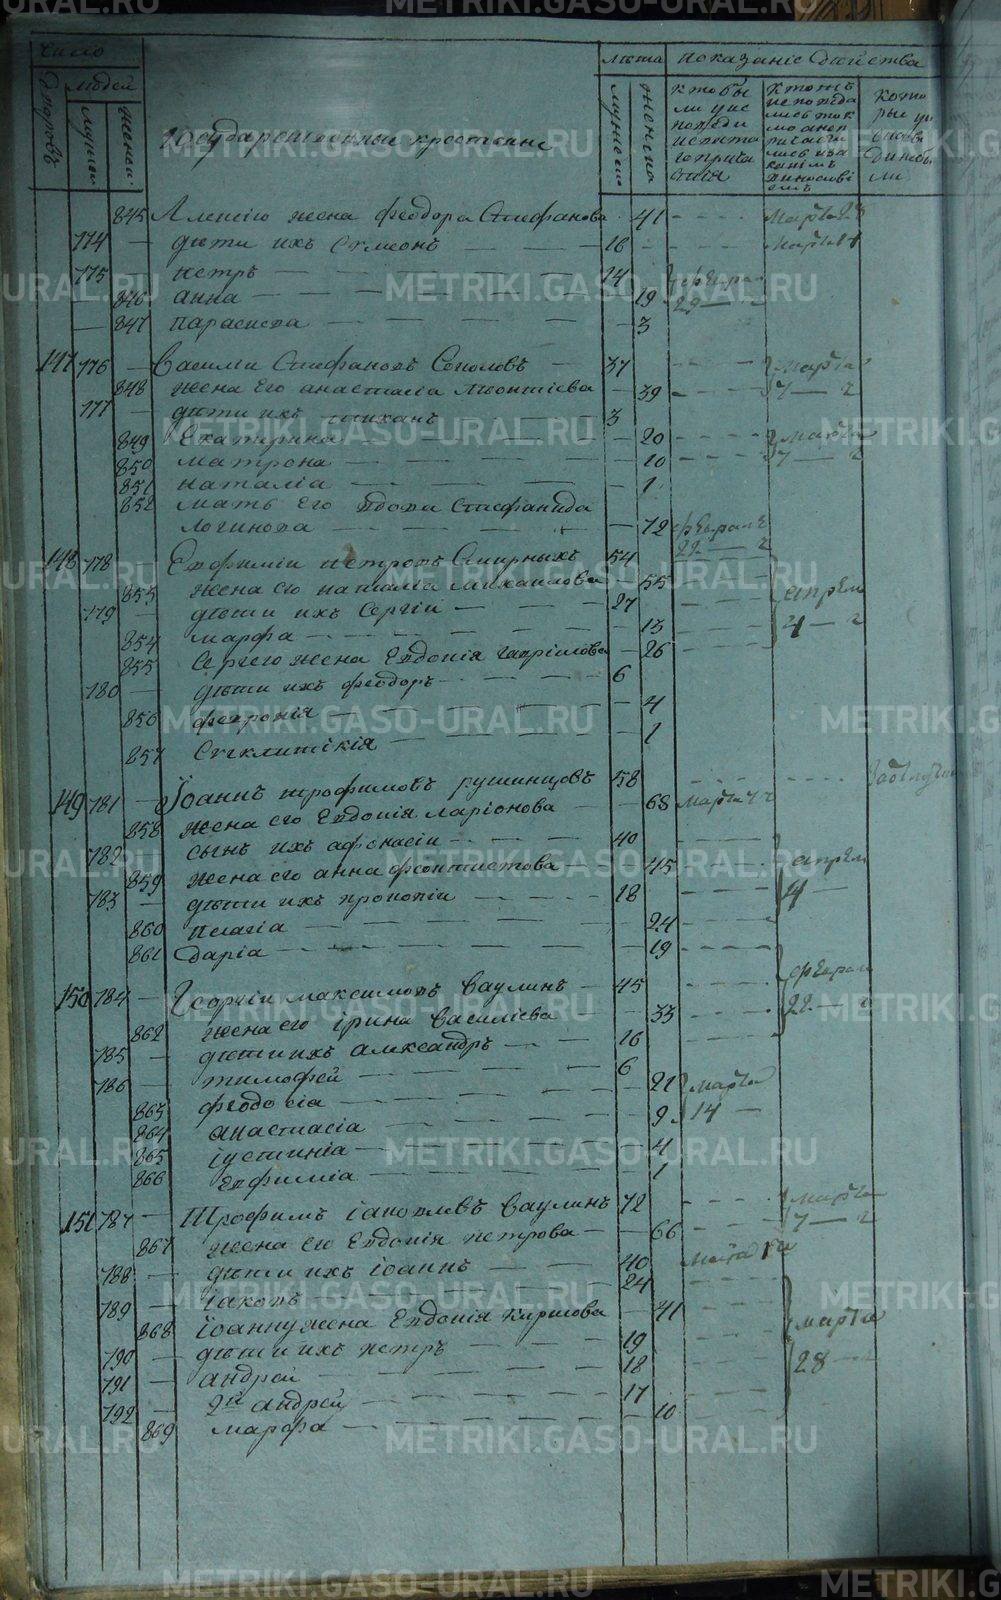 Число
Дворовъ
Людей
мужес.
женск.
Государственные крестьяне
лѣта
мужеско
женско
показаніе Действа
кто бы
ли у ис
поведи
испита
го прича
стія
ктожъ
исповеда
лись ток
мо анеп
ричасти
лись и за
какимъ
Виносло ві
емъ
кото
рые у и
спове
ди небы
ли
845 Алексіго жена Феодора Стефанова 41 Марта 23
774 дѣти ихъ Сѵмеонъ 16 Марта
775 петръ 14 февраля
846 анна 19 29
847 параскева 3
147 776 Василіи Стефановъ Соколовъ 37 Марта
848 жена его анастасіа Леонтіева 39 7 ч
777 дѣти ихъ стиханъ 3
849 Екатерина 20 марта
850 матрона 10 7 ч
851 наталіа 1
852 мать его вдова Стефанида
логинова 72 февраля
22 ч
148 778 Евфиміи петровъ Смирныхъ 54
853 жена его наталіа михаилова 55 апреля
779 дѣти ихъ Сергіи 27
854 марфа 13 4 ч
855 Сергіего жена Евдокія гаврілова 26
780 дѣти ихъ феодоръ 6
856 февронія 4
857 Сѵгклитикія 1
149 781 Іоаннъ трофимовъ рушинцовъ 58
858 жена его Евдокія ларіонова 68 Марта
782 сынъ ихъ афонасіи 40
859 жена его анна феоктистова 45 апреля
783 дѣти ихъ прокопіи 18 4
860 пелагіа 24
861 даріа 19
150 784 Георгіи максимовъ Ваулинъ 45 февраля
862 жена его ірина Василіева 33 22 ч
785 дѣти ихъ александръ 16
786 тимофей 6
863 феодосіа 21 марта
864 анастасіа 9 14
865 іустиніа 4
866 Евфиміа 1
151 787 Трофимъ іаковлевъ Ваулинъ 72 марта
867 жена его Евдокія петрова 66 7 ч
788 дѣти ихъ іоаннъ 40
789 іаковъ 24
868 іоанну жена Евдокія кирилова 41 марта
790 дѣти ихъ петръ 19
791 андрей 18 28
792 2й андрей 17
869 марфа 10
METRIKI.GASO-URAL.RU